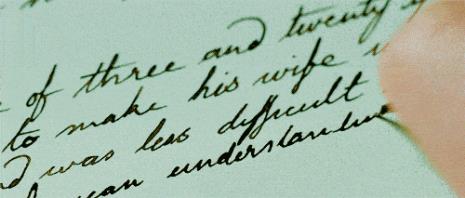 of three and twenty
to make his wife
was less difficult
mean understanding